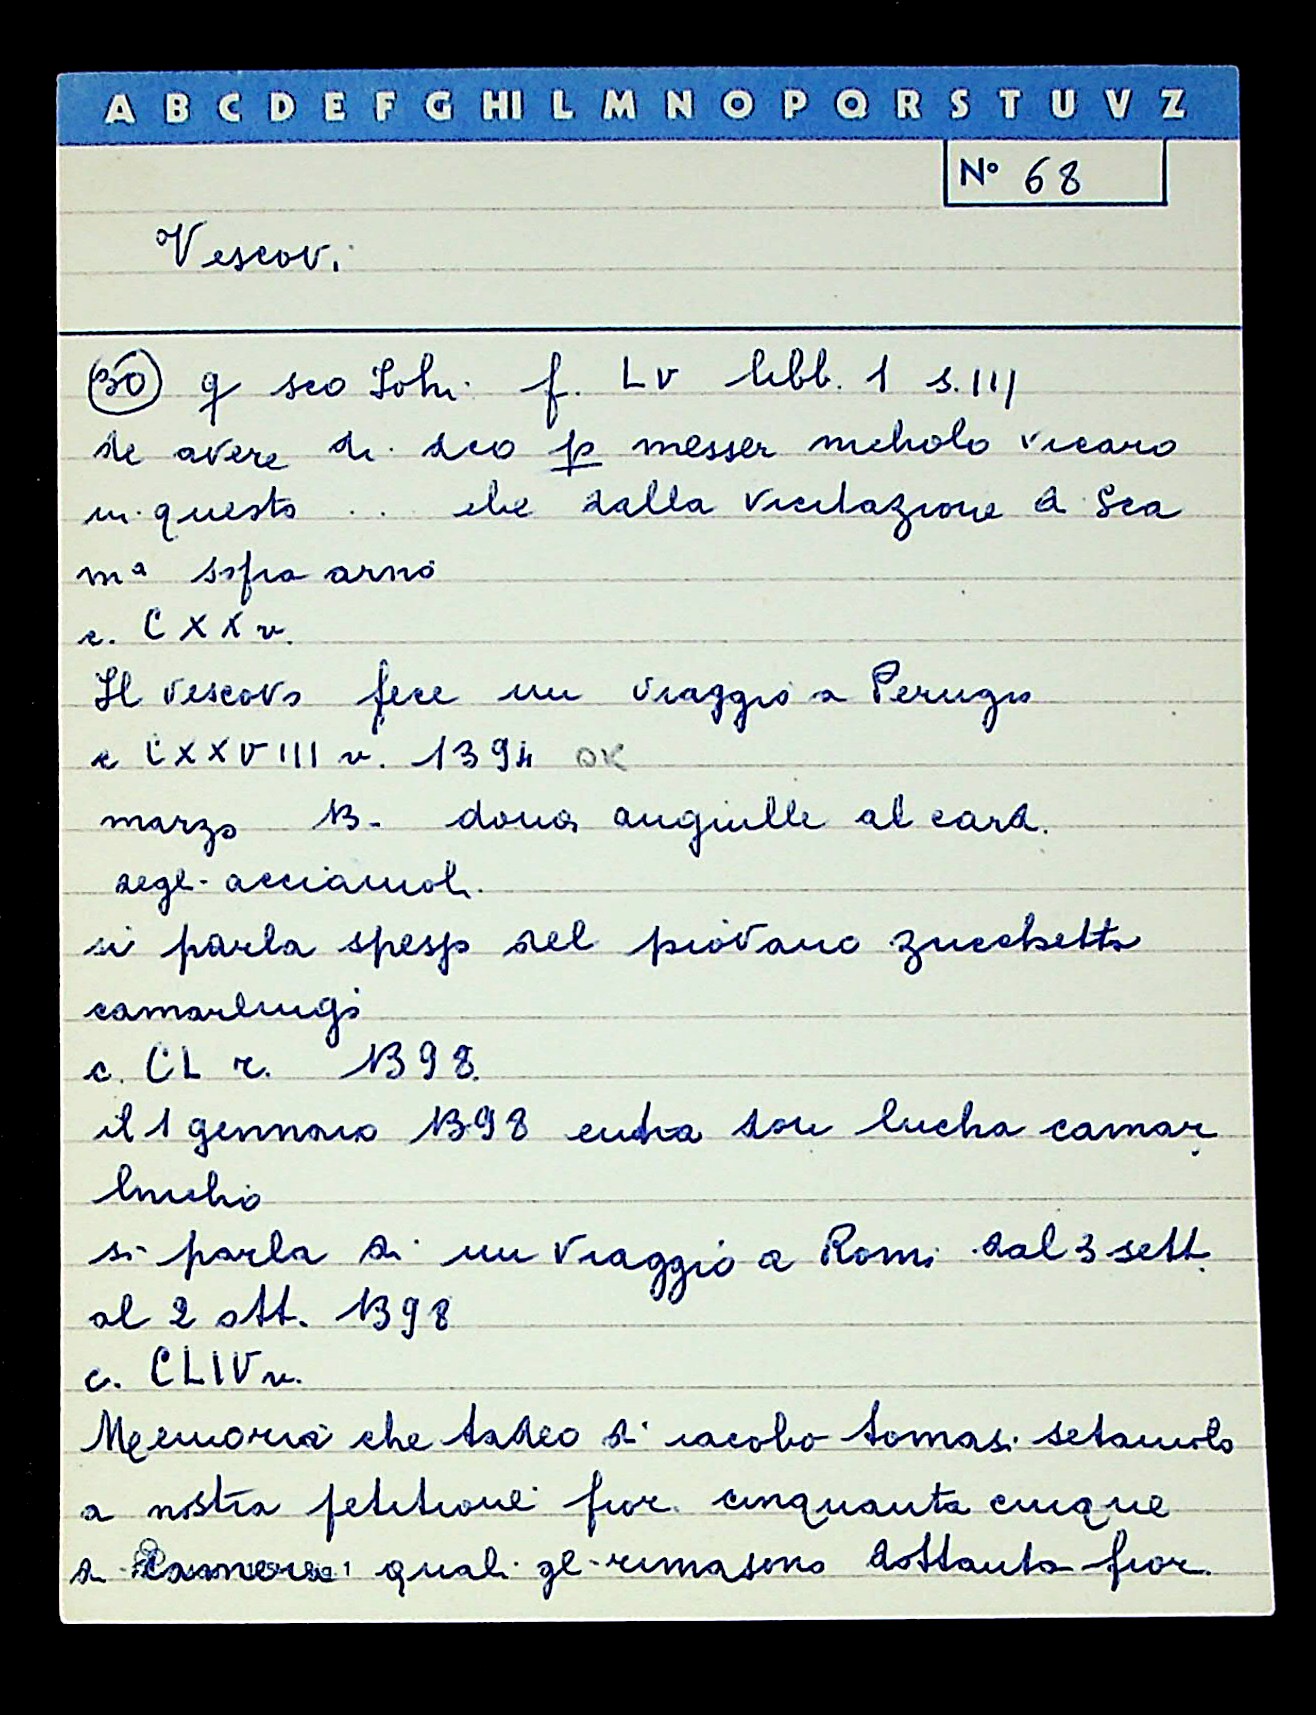 A B C D E F G HI L M N O P Q R S T U V Z
N° 68
Vescovi
30 q sco Iohi f. LV libb. 1 s. III
de avere di sco p messer nicholo vicaro
in questo .. che dalla vicitazione di Sca
mª sopra arno
c. CXX v.
Il vescovo fece un viaggio a Perugia
c CXXVIII v. 1394 OK
marzo 13- dona anguille al card.
degl. acciaiuoli
si parla spesso del piovano zucchetto
camarlingo
c. CL r. 1398.
il 1 gennaio 1398 entra don lucha camar
lincho
si parla di un viaggio a Roma dal 3 sett.
al 2 ott. 1398
c. CLIV v.
Memoria che tadeo di iacobo tomasi setaiuolo
a nostra petitione fior. cinquanta cinque
di quali gl. rimasono fior.